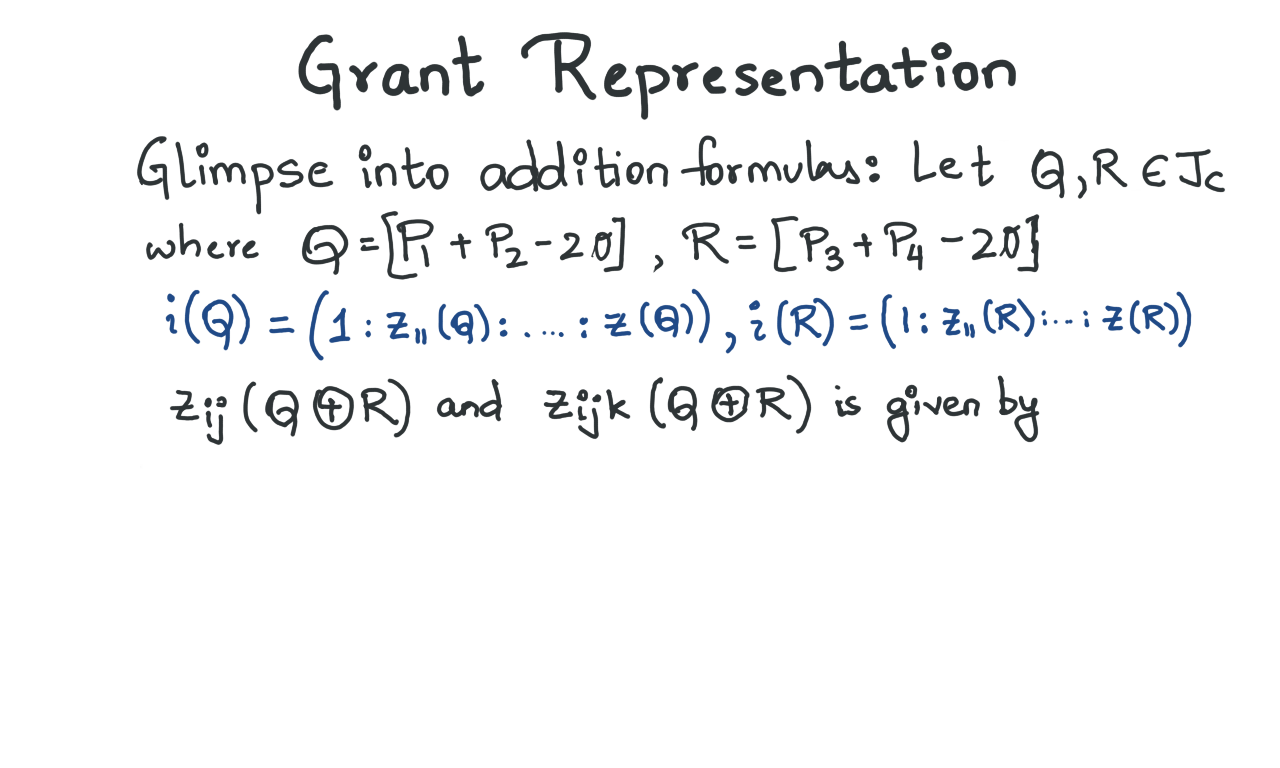 Grant Representation
Glimpse into addition formulas: Let Q, R ∈ J_C
where Q = [P₁ + P₂ - 2∅], R = [P₃ + P₄ - 2∅]
i(Q) = (1 : z₁₁(Q) : .... : z(Q)), i(R) = (1 : z₁₁(R) : ... : z(R))
z_ij (Q ⊕ R) and z_ijk (Q ⊕ R) is given by